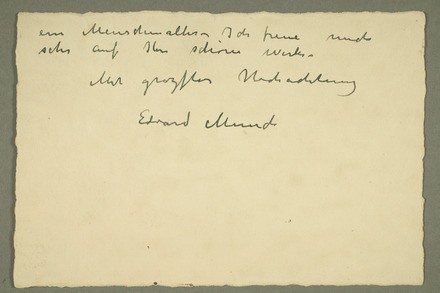 ein Menschenalter. Ich freue mich
sehr auf Ihr schönes Werk.
Mit größter Hochachtung
Edvard Munch